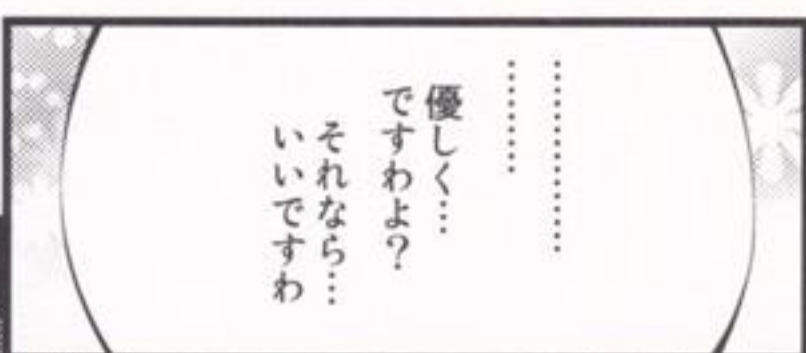 ………………
…………
優しく…
ですわよ?
それなら…
いいですわ